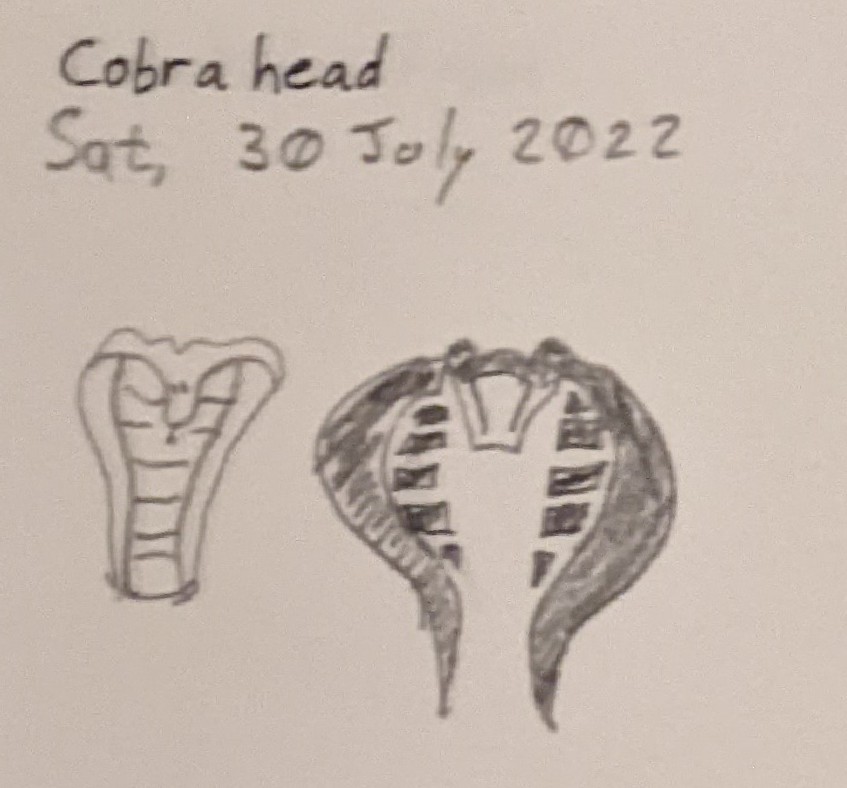 Cobra head
Sat, 30 July 2022